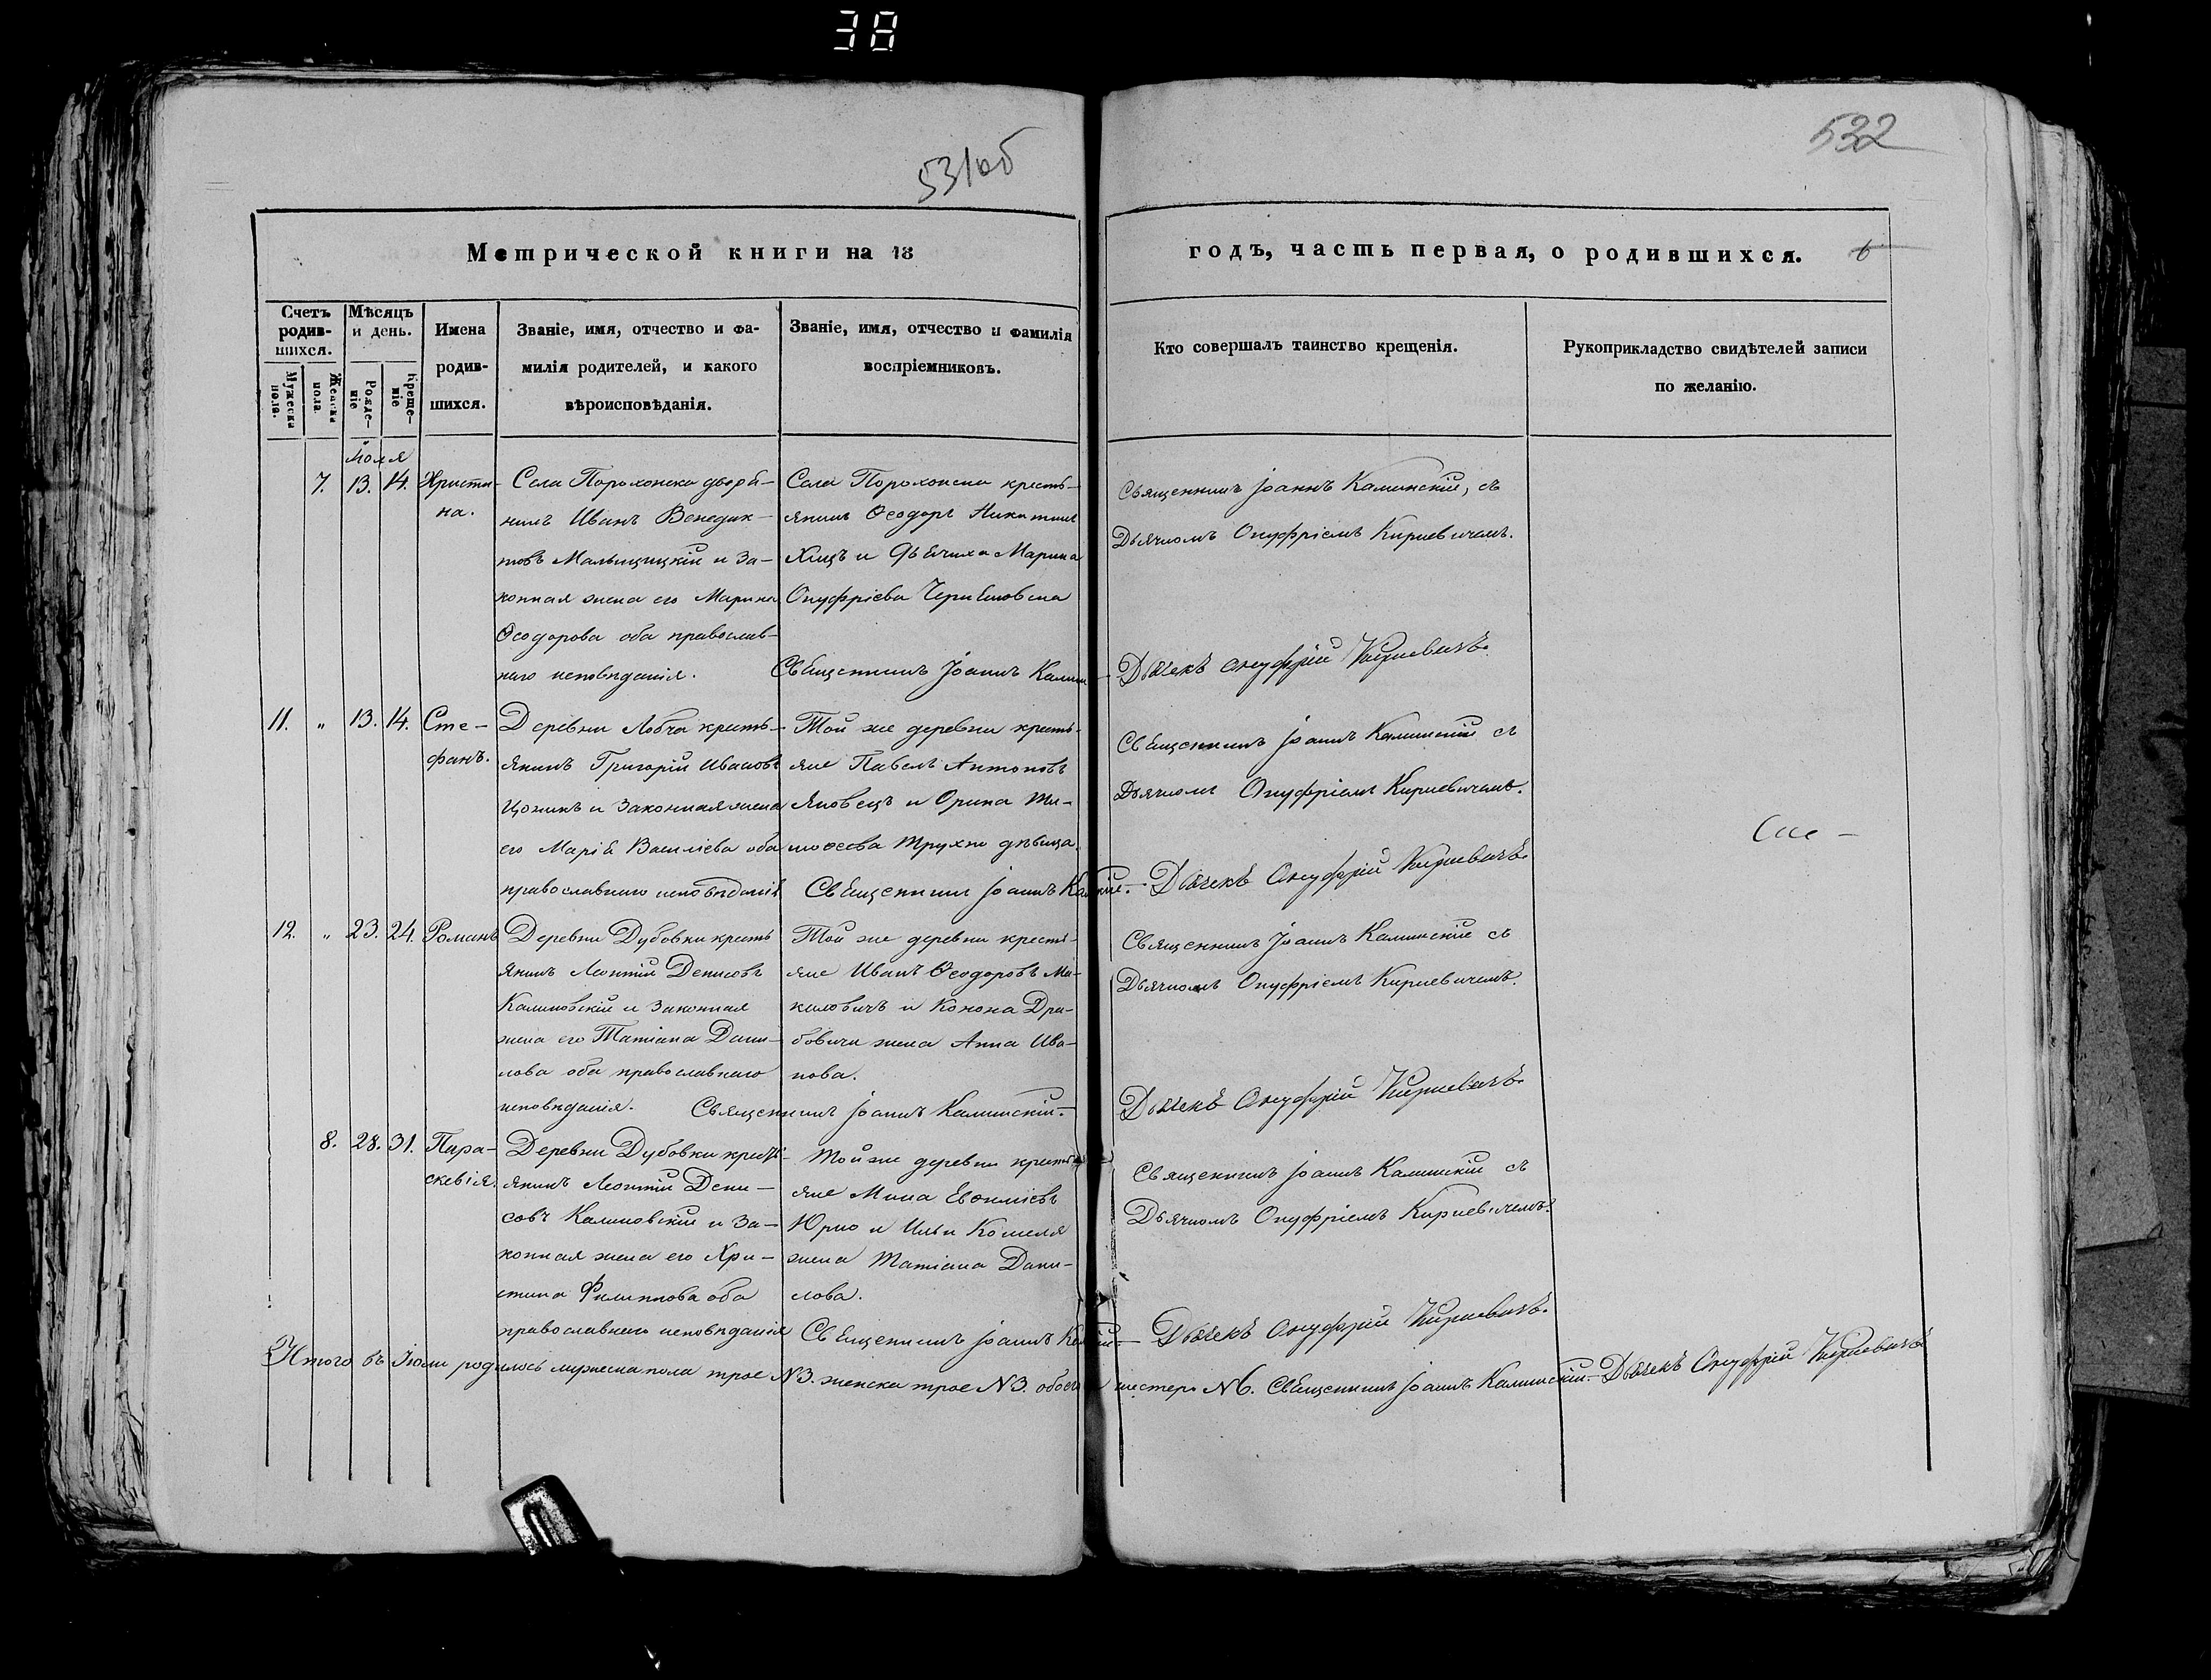 38
531об
532
Метрической книги на 18
годъ, часть первая, о родившихся.
6
Счетъ родив-шихся.
Мужеска пола.
Женска пола.
Мѣсяцъ и день.
Рожде-ніе
Креще-ніе
Имена родив-шихся.
Званіе, имя, отчество и фа-
милія родителей, и какого
вѣроисповѣданія.
Званіе, имя, отчество и фамилія
воспріемниковъ.
Кто совершалъ таинство крещенія.
Рукоприкладство свидѣтелей записи
по желанію.
Іюля
7. 13. 14. Христи-
на.
Села Порохонска дворя-
нинъ Иванъ Венедик-
товъ Малыщицкій и за-
конная жена его Марина
Ѳеодорова оба православ-
наго исповѣданія.
Села Порохонска кресть-
янинъ Ѳеодоръ Никитинъ
и дѣвица Марина
Онуфріева
Священникъ Іоаннъ
Священникъ Іоаннъ Калинскій, съ
Дьячкомъ Онуфріемъ Кирцевичемъ.
Дьячекъ Онуфрій Кирцевичъ.
11. „ 13. 14. Сте-
фанъ.
Деревни Лобча кресть-
янинъ Григорій Ивановъ
и законная жена
его Марія Василіева оба
православнаго исповѣданія
Той же деревни кресть-
яне Павелъ Антоновъ
Яновецъ и Орина Ти-
моѳеева Трухно дѣвица.
Священникъ Іоаннъ
Священникъ Іоаннъ Калинскій съ
Дьячкомъ Онуфріемъ Кирцевичемъ.
Дьячекъ Онуфрій Кирцевичъ.
12. „ 23. 24. Романъ
Деревни Дубовки кресть
янинъ Леонтій Денисовъ
Калиновскій и законная
жена его Татіана Дани-
лова оба православнаго
исповѣданія.
Той же деревни кресть-
яне Иванъ Ѳеодоровъ Ми-
киловичъ и Конона Дра-
бовича жена Анна Ива-
нова.
Священникъ Іоаннъ Калинскій.
Священникъ Іоаннъ Калинскій съ
Дьячкомъ Онуфріемъ Кирцевичемъ.
Дьячекъ Онуфрій Кирцевичъ.
8. 28. 31. Пара-
скевія.
Деревни Дубовки кресть-
янинъ Леонтій Дени-
совъ Калиновскій и за-
конная жена его Хри-
стина Филиппова оба
православнаго исповѣданія
Той же деревни кресть-
яне Мина Евѳиміевъ
Юрло и Ильи Комеля
жена Татіана Дани-
лова.
Священникъ Іоаннъ
Священникъ Іоаннъ Калинскій съ
Дьячкомъ Онуфріемъ Кирцевичемъ.
Дьячекъ Онуфрій Кирцевичъ.
Итого въ Іюли родилось мужеска пола трое N3. женска трое N3. обоего шестеро N6. Священникъ Іоаннъ Калинскій. Дьячекъ Онуфрій Кирцевичъ